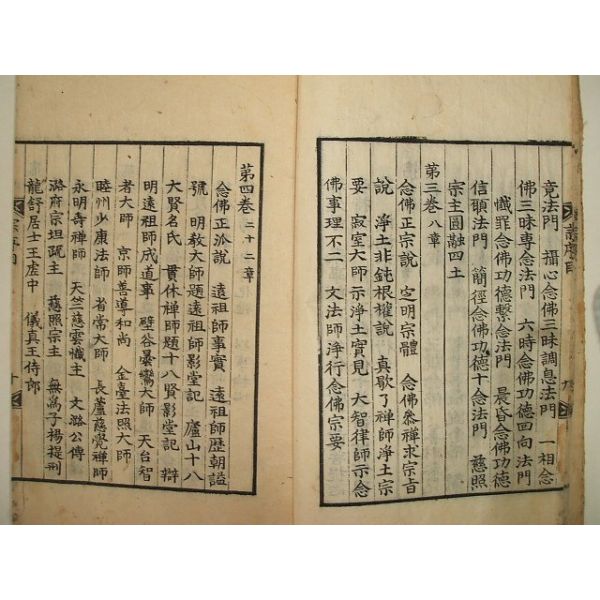 竟法門　攝心念佛三昧調息法門　一相念
佛三昧專念法門　六時念佛功德回向法門
懺罪念佛功德繫念法門　晨昏念佛功德
信願法門　簡徑念佛功德十念法門　慈照
宗主圓融四土
第三卷八章
念佛正宗說　定明宗體　念佛叅禪求宗旨
說　淨土非鈍根權說　真歇了禪師淨土宗
要　寂室大師示淨土實見　大智律師示念
佛事理不二　文法師淨行念佛宗要
第四卷二十二章
念佛正派說　遠祖師事實　遠祖師歷朝謚
號　明教大師題遠祖師影堂記　廬山十八
大賢名氏　貫休禪師題十八賢影堂記　辯
明遠祖師成道事　壁谷曇鸞大師　天台智
者大師　京師善導和尚　金臺法照大師
睦州少康法師　省常大師　長蘆慈覺禪師
永明壽禪師　天竺慈雲懺主　文潞公傳
潞府宗坦疏主　慈照宗主　無為子楊提刑
龍舒居士王虛中　儀真王侍郎
十